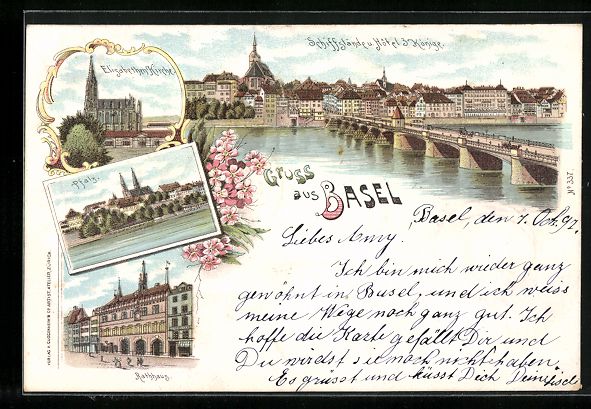 Elisabethen Kirche.
Schifflände u. Hôtel 3 Könige.
Pfalz.
Gruss
aus BASEL
No 337
Basel, den 7. Oct. 97.
Liebes Amy.
Ich bin mich wieder ganz
gewöhnt in Basel, und ich weiss
meine Wege noch ganz gut. Ich
hoffe die Karte gefällt Dir und
Du wirdst sie noch nicht haben.
Es grüsst und küsst Dich Deine
Rathhaus.